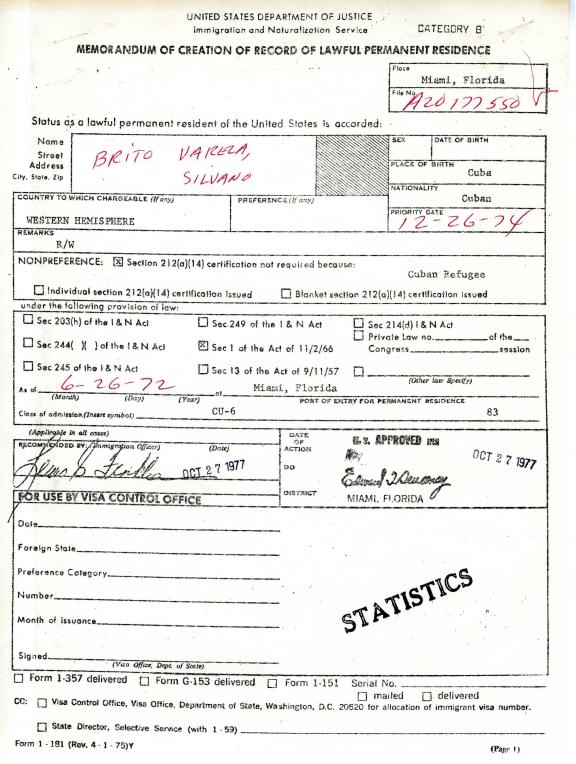 UNITED STATES DEPARTMENT OF JUSTICE
Immigration and Naturalization Service
CATEGORY B
MEMORANDUM OF CREATION OF RECORD OF LAWFUL PERMANENT RESIDENCE
Place
Miami, Florida
File No.
A20 177 550
Status as a lawful permanent resident of the United States is accorded:
Name
Street
Address
City, State, Zip
BRITO VARELA,
SILVANO
SEX
DATE OF BIRTH
PLACE OF BIRTH
Cuba
NATIONALITY
Cuban
COUNTRY TO WHICH CHARGEABLE (If any)
WESTERN HEMISPHERE
PREFERENCE (If any)
PRIORITY DATE
12-26-74
REMARKS
R/W
NONPREFERENCE: ☒ Section 212(a)(14) certification not required because:
Cuban Refugee
☐ Individual section 212(a)(14) certification issued ☐ Blanket section 212(a)(14) certification issued
under the following provision of law:
☐ Sec 203(h) of the I & N Act ☐ Sec 249 of the I & N Act ☐ Sec 214(d) I & N Act
☐ Sec 244( )( ) of the I & N Act ☒ Sec 1 of the Act of 11/2/66 ☐ Private Law no. of the
Congress, session
☐ Sec 245 of the I & N Act ☐ Sec 13 of the Act of 9/11/57 ☐
(Other law Specify)
As of 6-26-72 at Miami, Florida
(Month) (Day) (Year) PORT OF ENTRY FOR PERMANENT RESIDENCE
Class of admission (Insert symbol) CU-6 83
(Applicable in all cases)
RECOMMENDED BY: (Immigration Officer) (Date)
OCT 27 1977
DATE
OF
ACTION
DD
DISTRICT
U.S. APPROVED INS
OCT 27 1977
MIAMI, FLORIDA
FOR USE BY VISA CONTROL OFFICE
Date
Foreign State
Preference Category
Number
Month of Issuance
Signed
(Visa Office, Dept. of State)
STATISTICS
☐ Form 1-357 delivered ☐ Form G-153 delivered ☐ Form 1-151 Serial No.
☐ mailed ☐ delivered
CC: ☐ Visa Control Office, Visa Office, Department of State, Washington, D.C. 20520 for allocation of immigrant visa number.
☐ State Director, Selective Service (with 1-59)
Form 1-181 (Rev. 4-1-75)Y
(Page 1)